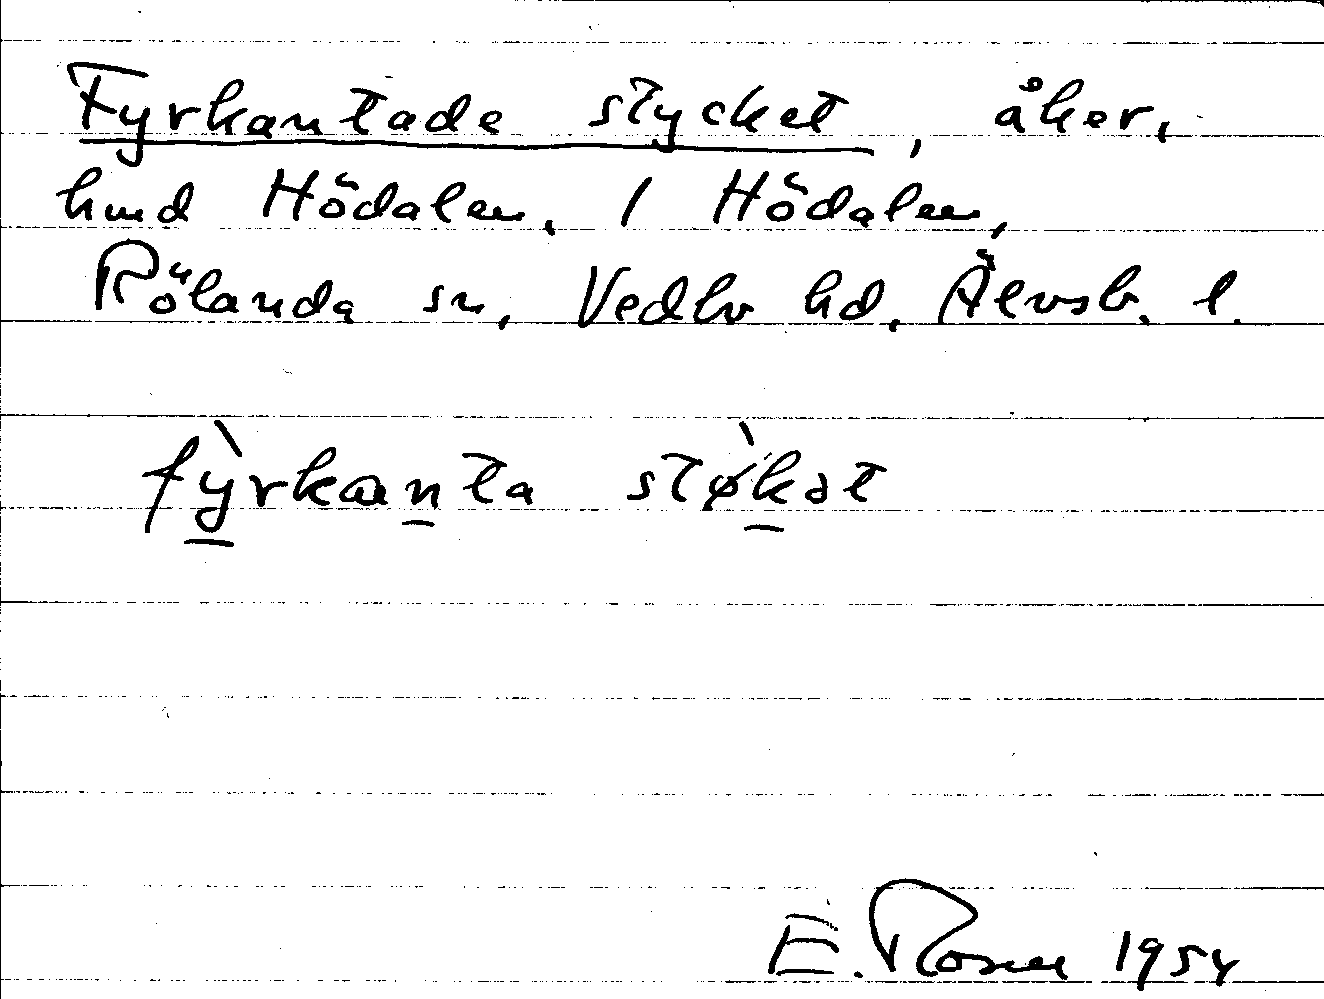 Fyrkantade stycket, åker,
hmd Hödalen, 1 Hödalen,
Rölanda sn, Vedbo hd, Älvsb. l.
fỳrkanta stø̀kət
E. Rosen 1954